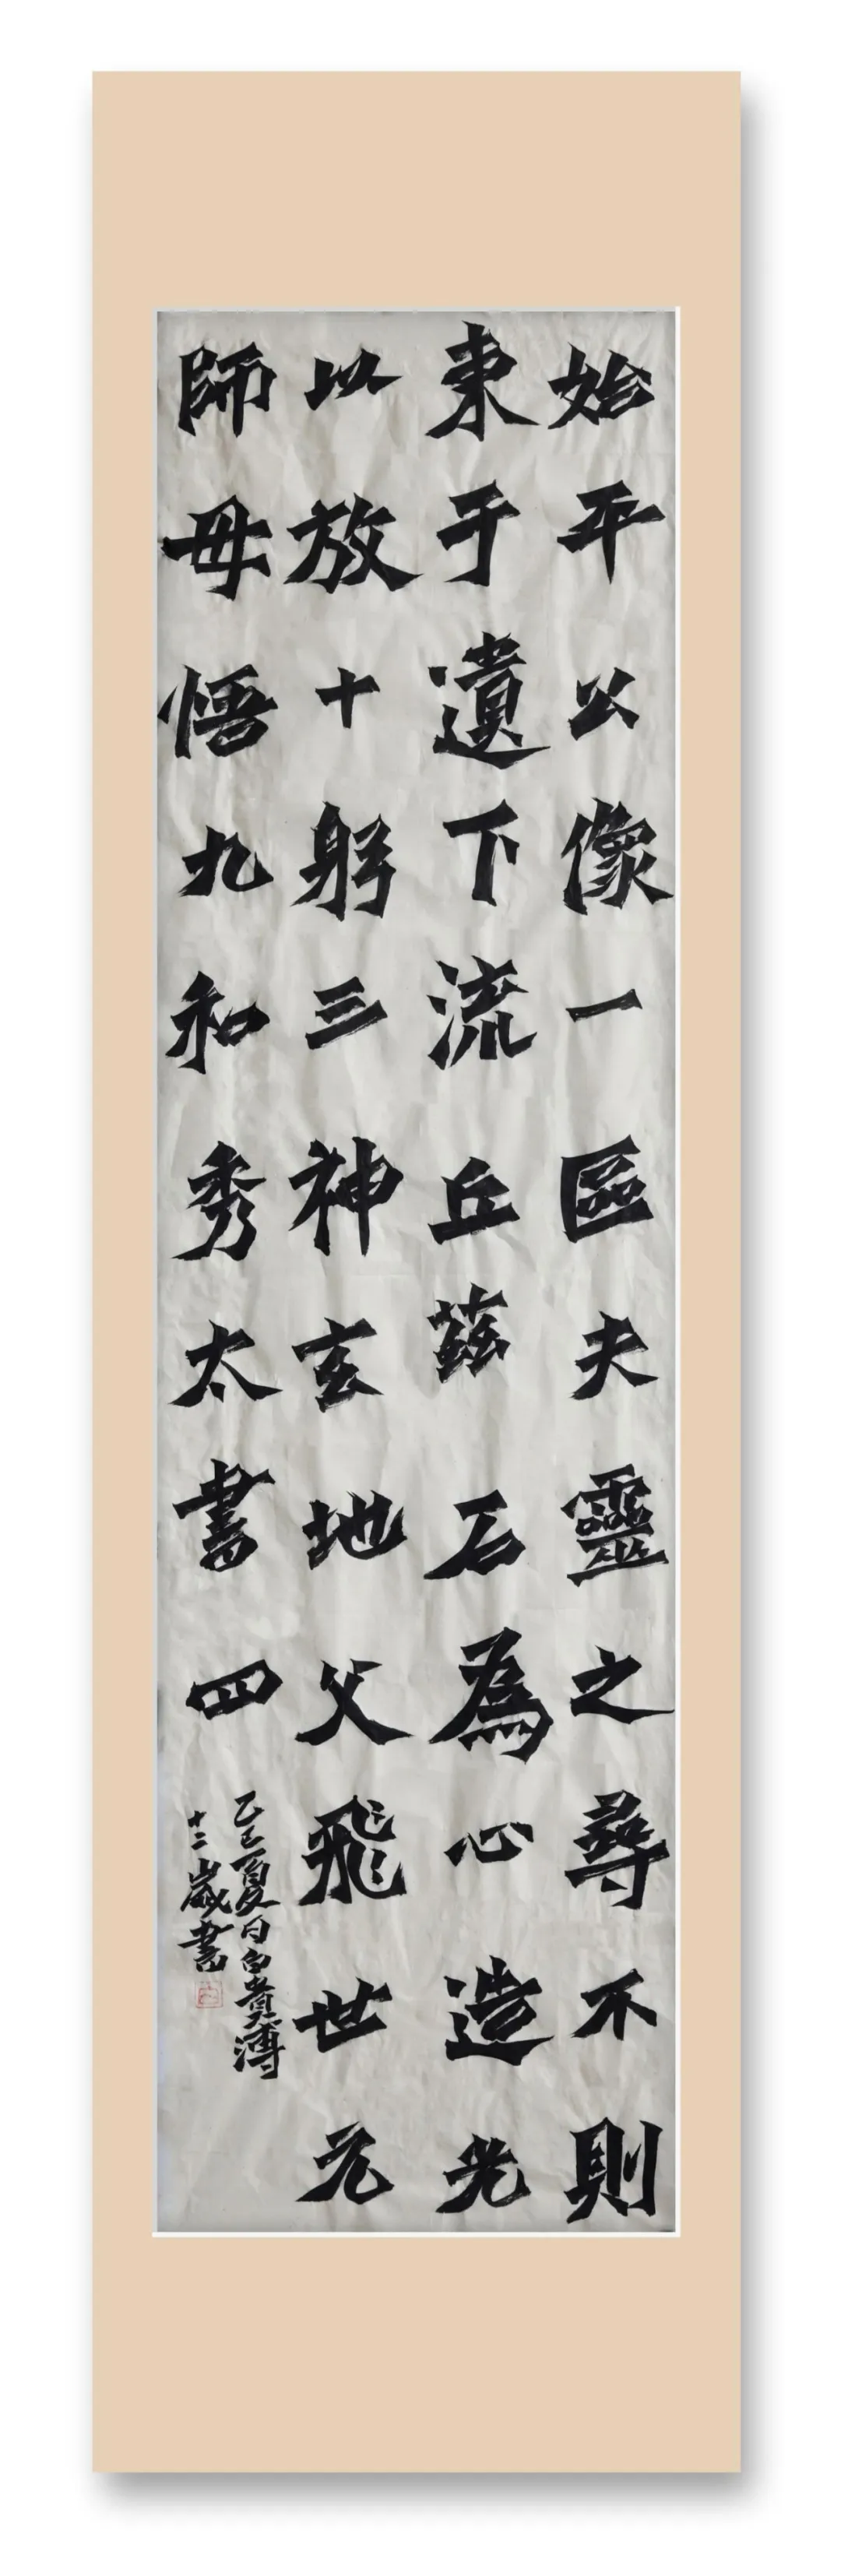 始平公像一區夫靈之尋不則
東于遺下流丘茲石為心造光
以放十躬三神玄地父飛世元
師母悟九和秀太書四
乙巳夏月白貴溥
十二歲書